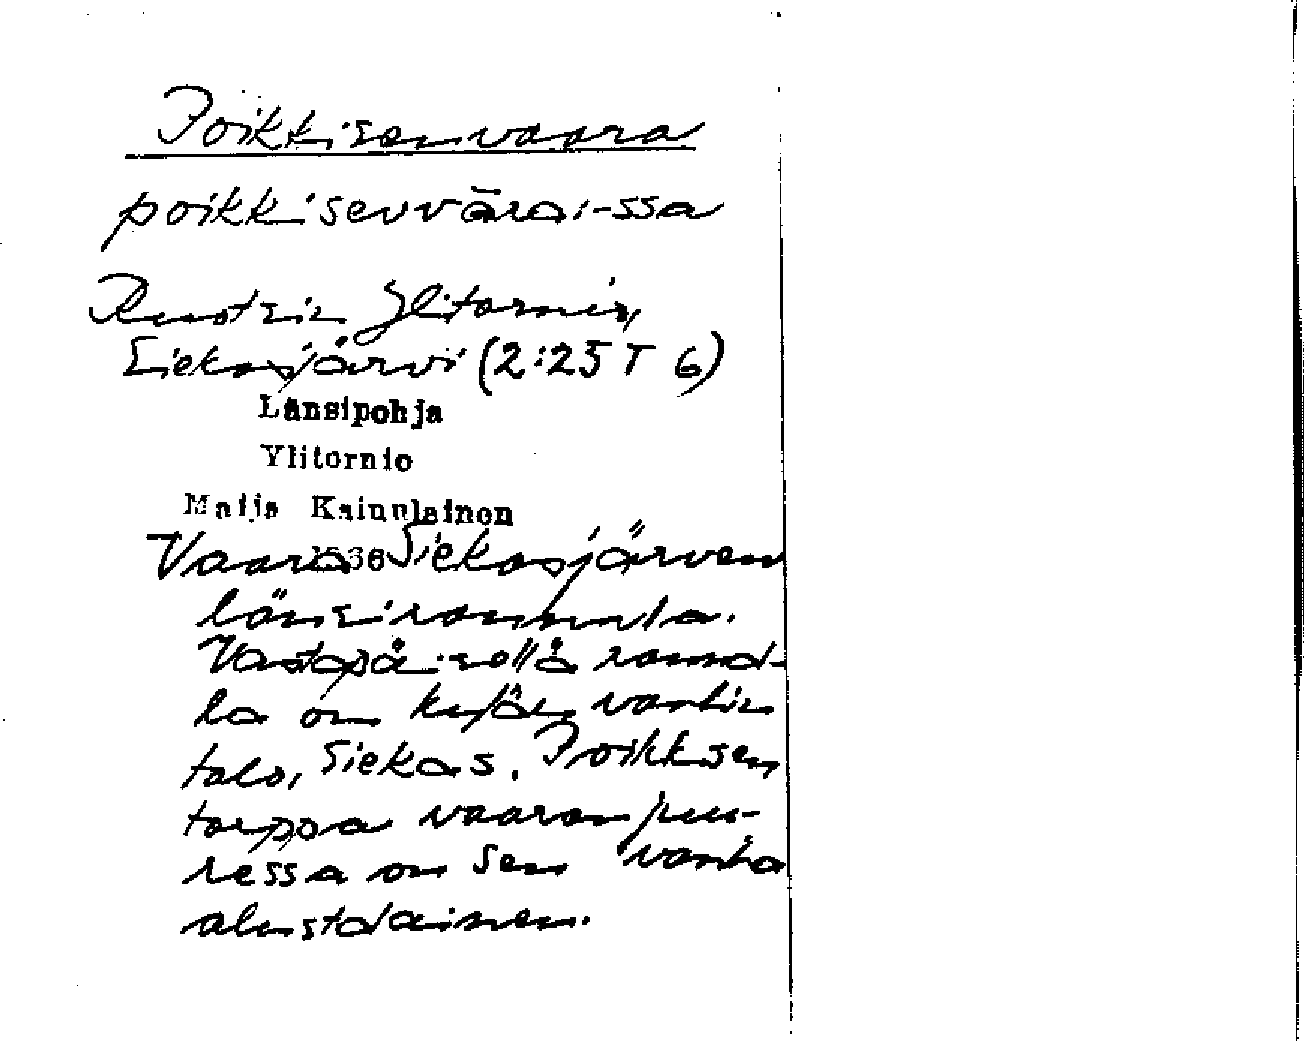 Poikkisenvaara
poikkisevvāra: -ssa
Ruotsin Ylitornio,
Siekasjärvi (2:25 T 6)
Länsipohja
Ylitornio
Maija Kainulainen
1536
Vaara Siekasjärven
länsirannalla.
Vastapäisellä rannal-
la on kylän vanhin
talo, Siekas. Poikksen
torppa vaaran juu-
ressa on sen vanha
alustalainen.